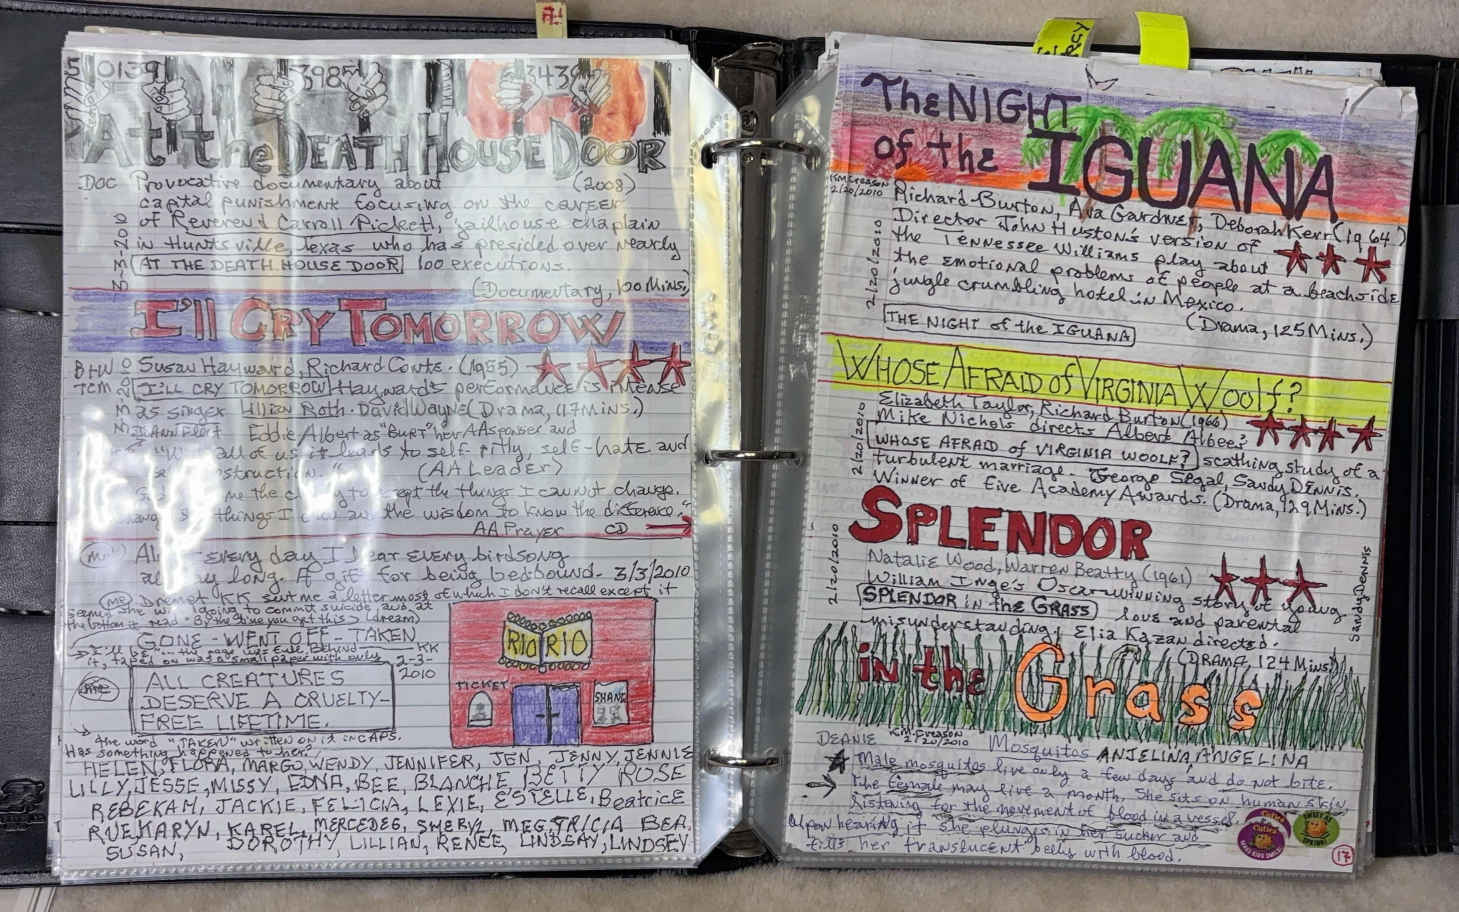 0139 3985 3439
At the DEATH HOUSE DOOR
DOC Provocative documentary about (2008)
capital punishment focusing on the career
of Reverend Carroll Pickett, jailhouse chaplain
in Huntsville Texas who has presided over nearly
AT THE DEATH HOUSE DOOR 100 executions.
(Documentary, 100 Mins)
I'll CRY TOMORROW
B+W Susan Hayward, Richard Conte. (1955)
TCM I'LL CRY TOMORROW Hayward's performance is intense
as singer Lillian Roth. David Wayne (Drama, 117 Mins.)
Eddie Albert as "BURT" her AA sponser and
all of us it leads to self-pitty, self-hate and
(AA LEADER)
me the to accept the things I cannot change.
things I can and the wisdom to know the difference."
AA Prayer CD
(ME) every day I hear every birdsong
all day long. A gift for being bedbound. 3/3/2010
(me) Dreamt KK sent me a letter most of which I don't recall except it
seems she was going to commit suicide, and, at
the bottom it read "By the time you get this> (dream)
GONE-WENT OFF-TAKEN
KK
it, taped on was a small paper with only
2-3-
2010
ALL CREATURES
DESERVE A CRUELTY-
FREE LIFETIME.
the word "TAKEN" written on it in CAPS.
Has something happened to her?
RIO RIO
TICKET
SHANE
HELEN, FLORA, MARGO, WENDY, JENNIFER, JEN, JENNY, JENNIE
LILLY, JESSE, MISSY, EDNA, BEE, BLANCHE, BETTY ROSE
REBEKAH, JACKIE, FELICIA, LEXIE, ESTELLE, Beatrice
RUE, KARYN, KAREL, MERCEDES, SHERYL, MEG, TRICIA BEA,
SUSAN, DOROTHY, LILLIAN, RENEE, LINDSAY, LINDSEY
The NIGHT
of the IGUANA
KM.Greason
2/20/2010
Richard Burton, Ava Gardner, Deborah Kerr (1964)
Director John Huston's version of
the Tennessee Williams play about
the emotional problems of people at a beachside
jungle crumbling hotel in Mexico.
2/20/2010
THE NIGHT of the IGUANA (Drama, 125 Mins.)
WHOSE AFRAID of VIRGINIA Woolf?
Elizabeth Taylor, Richard Burton (1966)
Mike Nichols directs Albert Albee?
WHOSE AFRAID OF VIRGINIA WOOLF? scathing study of a
turbulent marriage. George Segal Sandy DENNIS.
Winner of Five Academy Awards. (Drama, 129 Mins.)
2/20/2010
SPLENDOR
Natalie Wood, Warren Beatty (1961)
William Inge's Oscar-winning story of young
SPLENDOR in the GRASS love and parental
misunderstanding, Elia Kazan directed.
(DRAMA, 124 Mins)
2/20/2010
Sandy DENNIS
in the Grass
DEANIE K.M.Greason
2/20/2010
Mosquitos ANJELINA, ANGELINA
Male mosquitos live only a few days and do not bite.
The female may live a month. She sits on human skin,
listening for the movement of blood in a vessel.
Upon hearing it she plunges in her sucker and
fills her translucent belly with blood.
Cuties
17